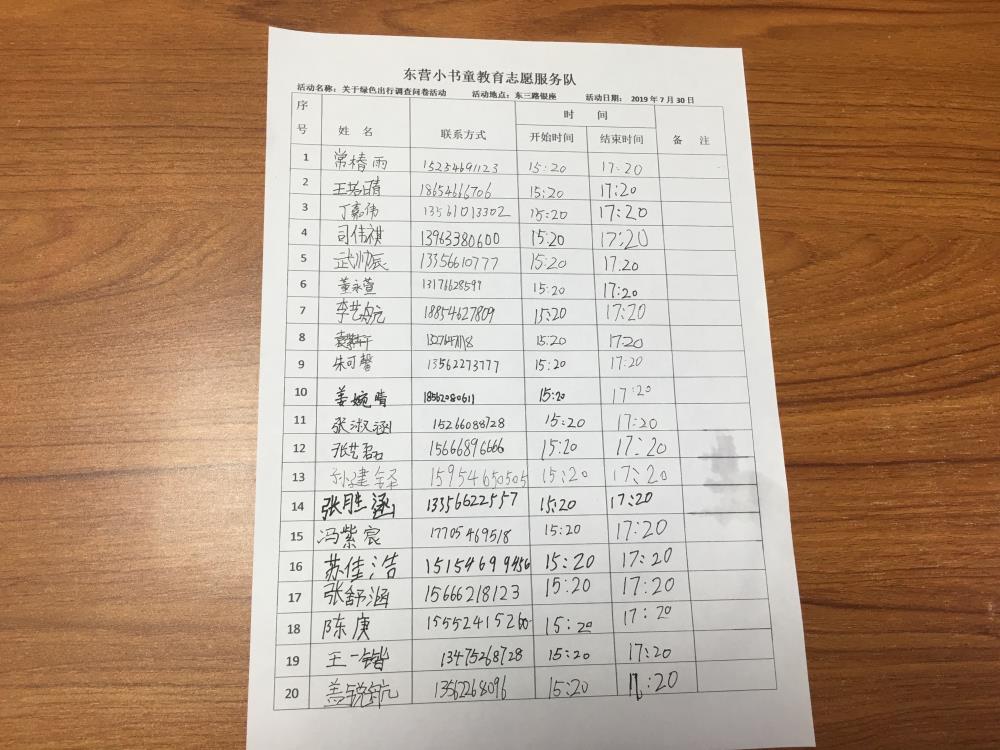 东营小书童教育志愿服务队
活动名称：关于绿色出行调查问卷活动 活动地点：东三路银座 活动日期： 2019 年 7 月 30 日
序号 姓 名 联系方式 时 间 备 注
开始时间 结束时间
1 常椿雨 15254691123 15:20 17:20
2 王若晴 18654666706 15:20 17:20
3 丁嘉伟 13561013302 15:20 17:20
4 司伟祺 13963380600 15:20 17:20
5 武帅辰 13356610777 15:20 17:20
6 董永萱 13176628599 15:20 17:20
7 李艺航 18854627809 15:20 17:20
8 15:20 17:20
9 朱可馨 13562273777 15:20 17:20
10 姜婉晴 18562080611 15:20 17:20
11 张淑涵 15266088728 15:20 17:20
12 张艺磊 15666896666 15:20 17:20
13 孙建铎 15954650505 15:20 17:20
14 张胜涵 13356622557 15:20 17:20
15 冯紫宸 17705469518 15:20 17:20
16 苏佳浩 15154699456 15:20 17:20
17 张舒涵 15666218123 15:20 17:20
18 陈庚 15552415260 15:20 17:20
19 王一锴 13475268728 15:20 17:20
20 盖锐航 13562268096 15:20 17:20